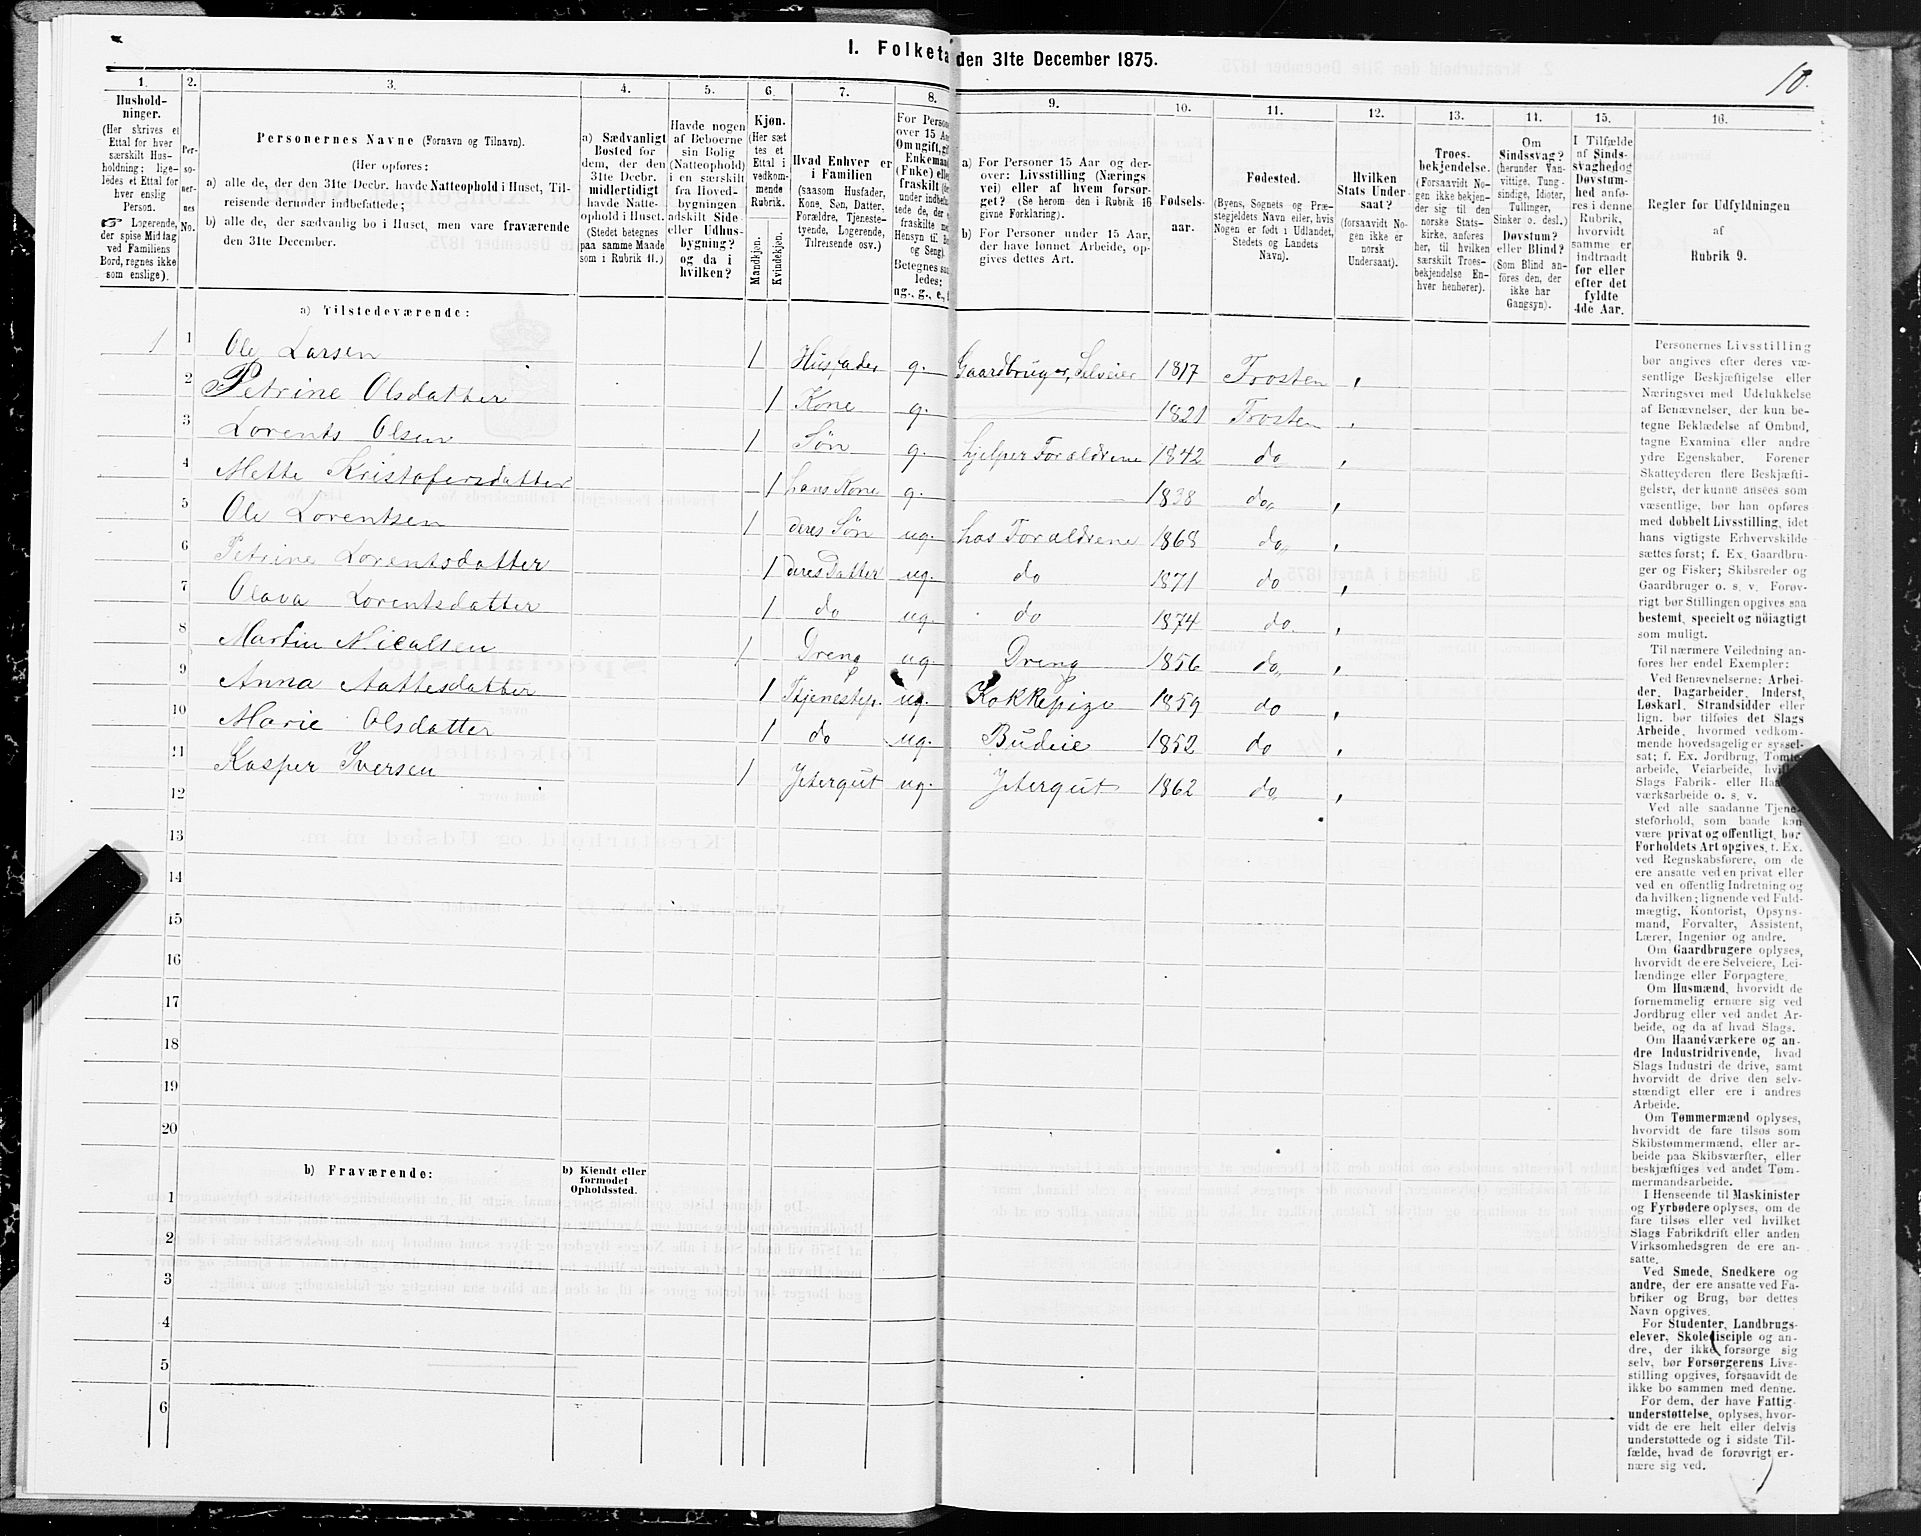 I. Folketa den 31te December 1875.
10.
1. 2. 3. 4. 5. 6. 7. 8. 9. 10. 11. 12. 13. 14. 15. 16.
Hushold-
ninger.
(Her skrives et
Ettal for hver
særskilt Hus-
holdning; lige-
ledes et Ettal for
hver enslig
Person.
☞ Logerende,
der spise Middag
ved Familiens
Bord, regnes ikke
som enslige).
Per-
so-
ner-
nes
No.
Personernes Navne (Fornavn og Tilnavn).
(Her opføres:
a) alle de, der den 31te Decbr. havde Natteophold i Huset, Til-
reisende derunder indbefattede;
b) alle de, der sædvanlig bo i Huset, men vare fraværende
den 31te December.
a) Sædvanligt
Bosted for
dem, der den
31te Decbr.
midlertidigt
havde Natte-
ophold i Huset.
(Stedet betegnes
paa samme Maade
som i Rubrik 11.)
Havde nogen
af Beboerne
sin Bolig
(Natteophold)
i en særskilt
fra Hoved-
bygningen
adskilt Side-
eller Udhus-
bygning?
og da i
hvilken?
Kjøn.
(Her sæt-
tes et
Ettal i
vedkom-
mende
Rubrik.
Mandkjøn.
Kvindekjøn.
Hvad Enhver er
i Familien
(saasom Husfader,
Kone, Søn, Datter,
Forældre, Tjeneste-
tyende, Logerende,
Tilreisende osv.)
For Perso
over 15 Aa
Om ugift, gi
Enkeman
(Enke) elle
fraskilt
under indbe
tede de, der
fraskilte m
Hensyn til B
og Seng).
Betegnes saa
ledes:
ug., g., e.,
a) For Personer 15 Aar og der-
over: Livsstilling (Nærings-
vei) eller af hvem forsør-
get? (Se herom den i Rubrik 16
givne Forklaring).
b) For Personer under 15 Aar,
der have lønnet Arbeide, op-
gives dettes Art.
Fødsels-
aar.
Fødested.
(Byens, Sognets og Præ-
stegjeldets Navn eller, hvis
Nogen er født i Udlandet,
Stedets og Landets
Navn).
Hvilken
Stats Under-
saat?
(forsaavidt No-
gen ikke er
norsk
Undersaat).
Troes-
bekjendelse.
(Forsaavidt No-
gen ikke bekjen-
der sig til den
norske Stats-
kirke, anføres
her, til hvilken
særskilt Troes-
bekjendelse En-
hver henhører).
Om
Sindssvag?
(herunder Van-
vittige, Tung-
sindige, Idioter,
Tullinger,
Sinker o. desl.)
Døvstum?
eller Blind?
(Som Blind an-
føres den, der
ikke har
Gangsyn).
I Tilfælde
af Sinds-
svaghed og
Døvstum-
hed anfø-
res i denne
Rubrik,
hvorvidt
samme er
indtraadt
før eller
efter det
fyldte
4de Aar.
Regler for Udfyldningen
af
Rubrik 9.
a) Tilstedeværende:
1 1 Ole Larsen 1 Husfader g. Gaardbruger, Selveier 1817 Frosten
2 Petrine Olsdatter 1 Kone g. 1821 Frosten
3 Lorents Olsen 1 Søn g. hjelper Foraldrene 1842 do
4 Mette Kristofersdatter 1 hans Kone g. 1838 do
5 Ole Lorentsen 1 deres Søn ug. hos Foraldrene 1868 do
6 Petrine Lorentsdatter 1 deres Datter ug. do 1871 do
7 Olava Lorentsdatter 1 do ug. do 1874 do
8 Martin Nicalsen 1 Dreng ug. Dreng 1856 do
9 Anna Aattesdatter 1 Tjenestep. ug. Kokkepige 1859 do
10 Marie Olsdatter 1 do ug. Budeie 1852 do
11 Kasper Iversen 1 Jetergut ug. Jetergut 1862 do
12
13
14
15
16
17
18
19
20
b) Fraværende:
b) Kjendt eller
formodet
Opholdssted.
1
2
3
4
5
6
Personernes Livsstilling
bør angives efter deres væ-
sentlige Beskjæftigelse eller
Næringsvei med Udelukkelse
af Benævnelser, der kun be-
tegne Beklædelse af Ombud,
tagne Examina eller andre
ydre Egenskaber. Forener
Skatteyderen flere Beskjæfti-
gelser, der kunne ansees som
væsentlige, bør han opføres
med dobbelt Livsstilling, idet
hans vigtigste Erhvervskilde
sættes først; f. Ex. Gaardbru-
ger og Fisker; Skibsreder og
Gaardbruger o. s. v. Forøv-
rigt bør Stillingen opgives saa
bestemt, specielt og nöiagtigt
som muligt.
Til nærmere Veiledning an-
føres her endel Exempler:
Ved Benævnelserne: Arbei-
der, Dagarbeider, Inderst,
Løskarl, Strandsidder eller
lign. bør tilføies det Slags
Arbeide, hvormed vedkom-
mende hovedsagelig er syssel-
sat; f. Ex. Jordbrug, Tomte-
arbeide, Veiarbeide, hvil
Slags Fabrik- eller Haa
værksarbeide o. s. v.
Ved alle saadanne Tjene-
steforhold, som baade kan
være privat og offentligt, bør
Forholdets Art opgives, f. Ex.
ved Regnskabsførere, om de
ere ansatte ved en privat eller
ved en offentlig Indretning og
da hvilken; lignende ved Fuld-
mægtig, Kontorist, Opsyns-
mand, Forvalter, Assistent,
Lærer, Ingeniør og andre.
Om Gaardbrugere oplyses,
hvorvidt de ere Selveiere, Lei-
lændinge eller Forpagtere.
Om Husmænd, hvorvidt de
fornemmelig ernære sig ved
Jordbrug eller ved andet Ar-
beide, og da af hvad Slags.
Om Haandværkere og an-
dre Industridrivende, hvad
Slags Industri de drive, samt
hvorvidt de drive den selv-
stændigt eller ere i andres
Arbeide.
Om Tømmermænd oplyses,
hvorvidt de fare tilsøs som
Skibstømmermænd, eller ar-
beide paa Skibsværfter, eller
beskjæftiges ved andet Tøm-
mermandsarbeide.
I Henseende til Maskinister
og Fyrbødere oplyses, om de
fare tilsøs eller ved hvilket
Slags Fabrikdrift eller anden
Virksomhedsgren de ere an-
satte.
Ved Smede, Snedkere og
andre, der ere ansatte ved Fa-
briker og Brug, bør dettes
Navn opgives.
For Studenter, Landbrugs-
elever, Skoledisciple og an-
dre, der ikke forsørge sig
selv, bør Forsørgerens Livs-
stilling opgives, forsaavidt de
ikke bo sammen med denne.
For dem, der have Fattig-
understøttelse, oplyses, hvor-
vidt de ere helt eller delvis
understøttede og i sidste Til-
fælde, hvad de forøvrigt er-
nære sig ved.